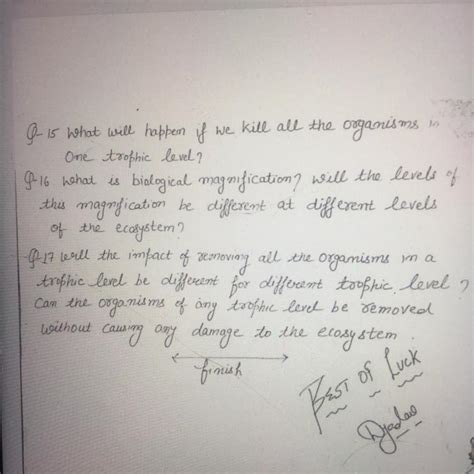 Q-15 What will happen if we kill all the organisms in
One trophic level?
Q-16 what is biological magnification? Will the levels of
this magnification be different at different levels
of the ecosystem?
Q-17 Will the impact of removing all the organisms in a
trophic level be different for different trophic level?
Can the organisms of any trophic level be removed
without causing any damage to the ecosystem.
finish
BEST OF LUCK